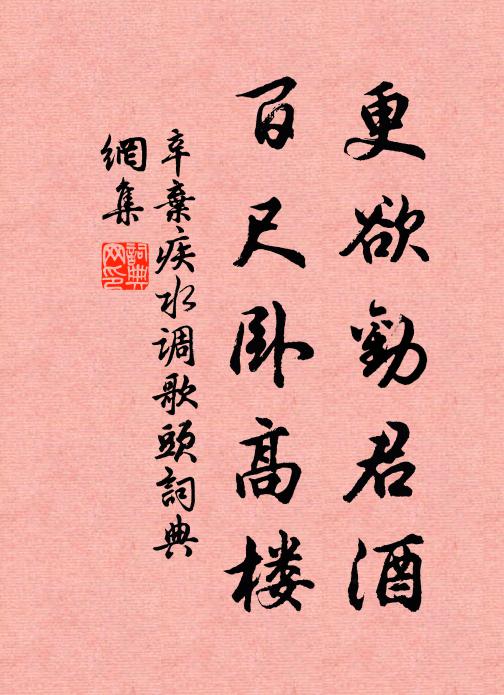 更欲劝君酒
百尺卧高楼
辛棄疾水调歌頭詞典
網集
詞典
网印